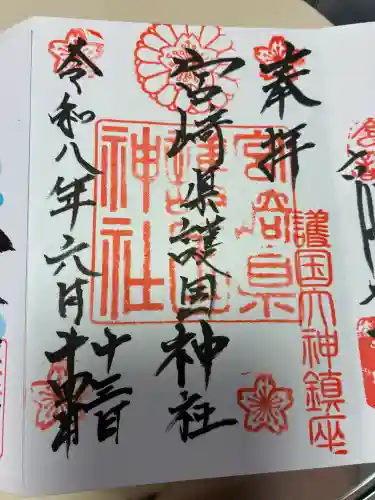 奉拝
宮崎県護国神社
令和八年六月十三日
宮崎県
護国
神社
護国大神鎮座